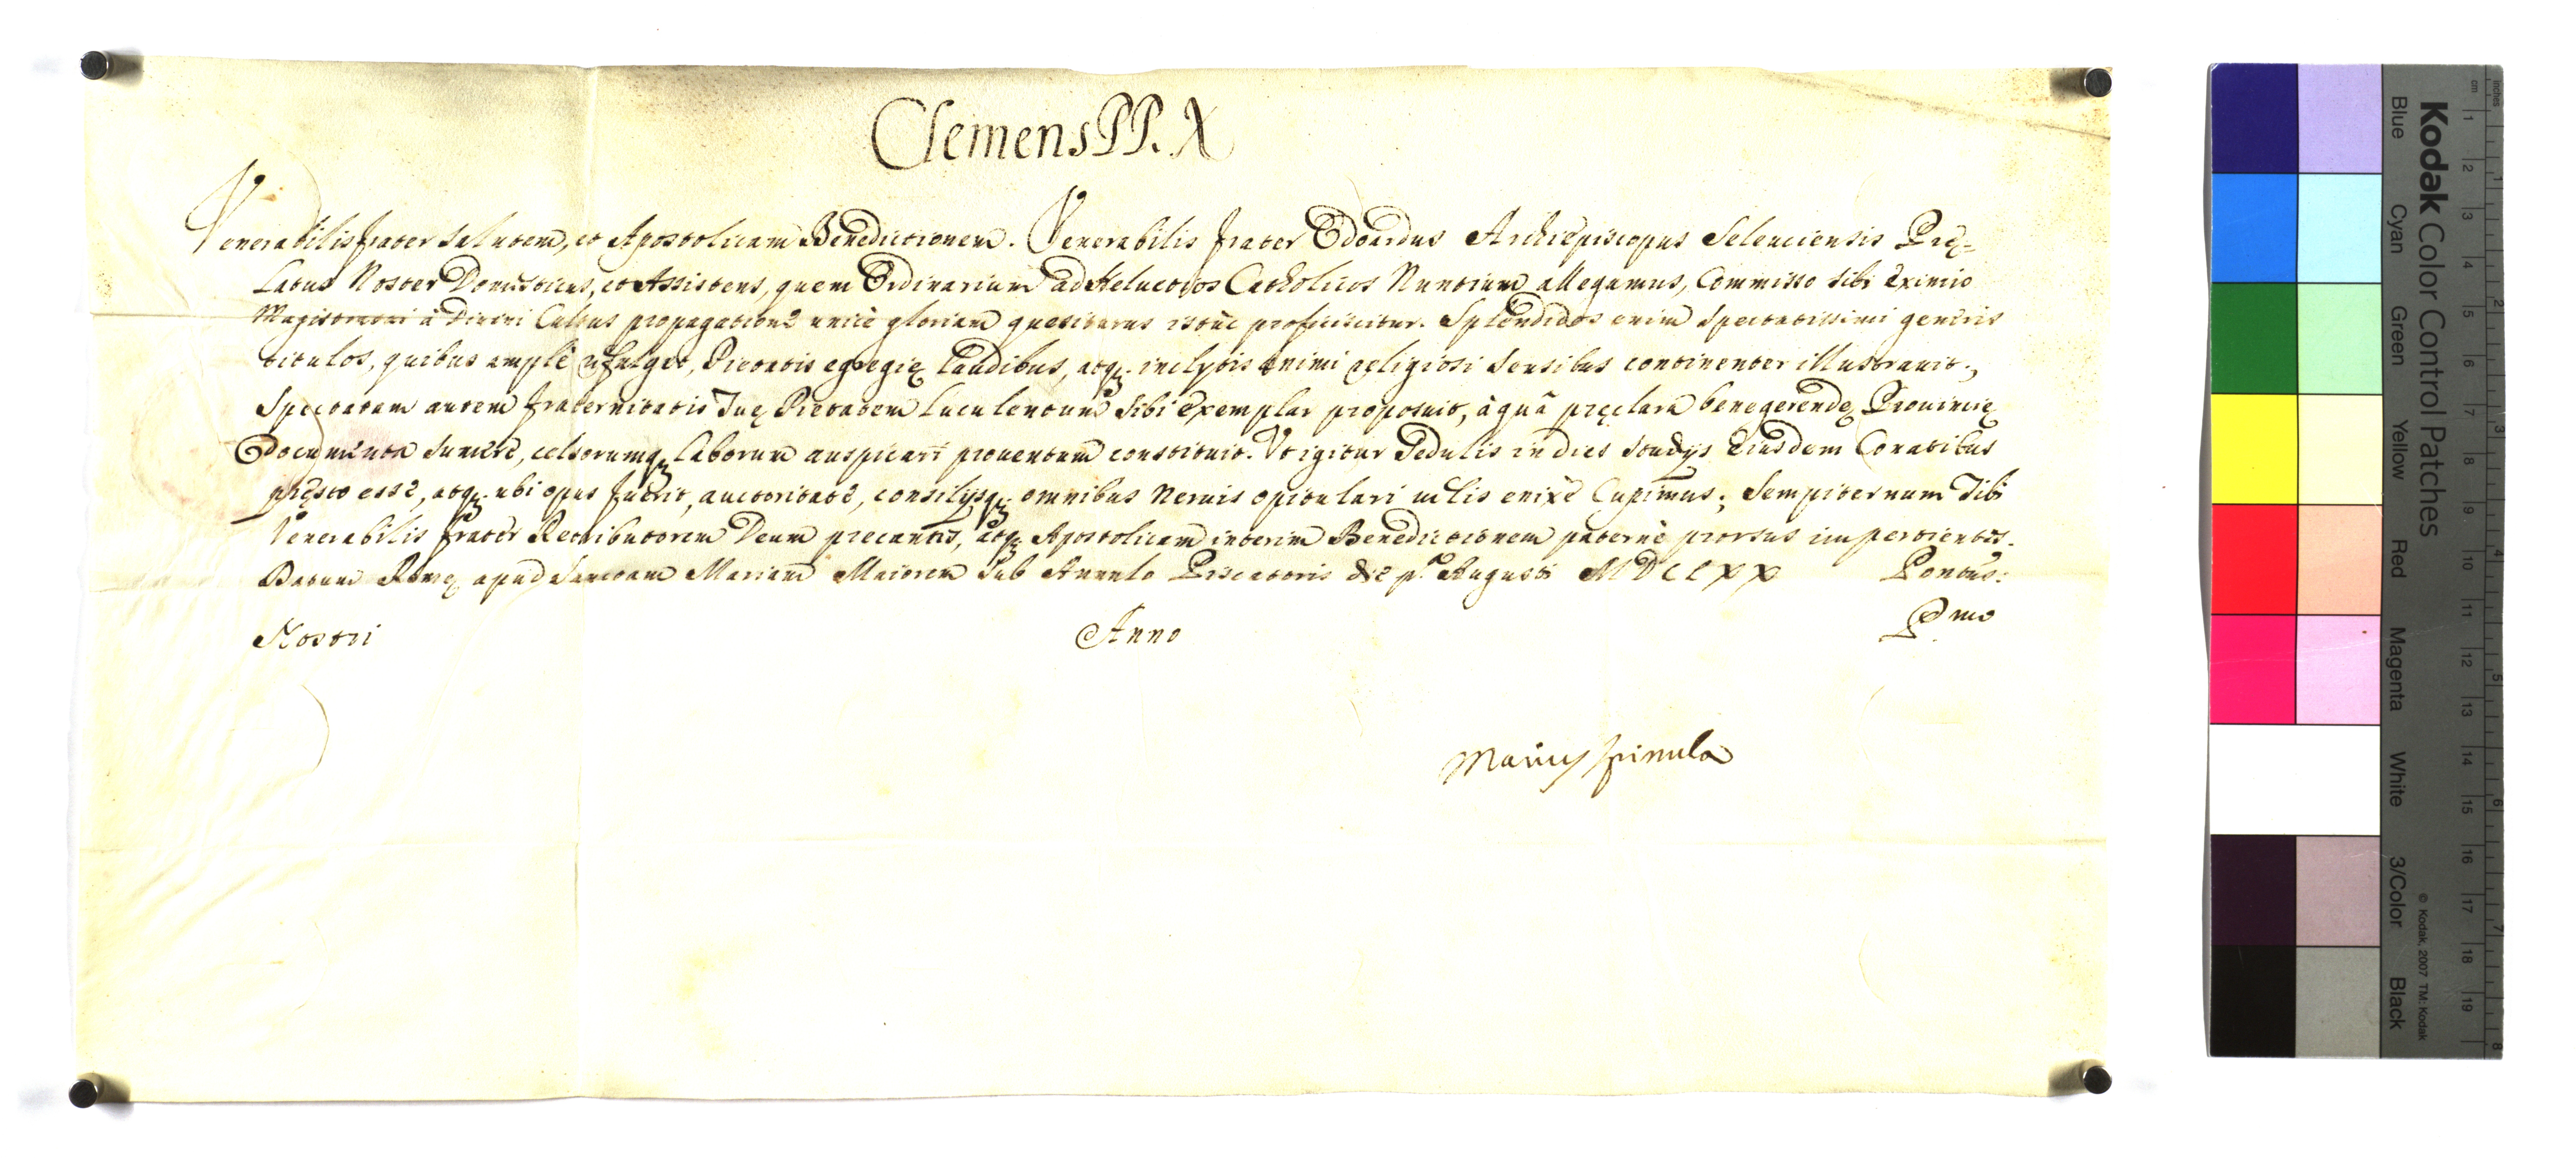 Clemens PP. X
Venerabilis frater salutem, et Apostolicam Benedictionem. Venerabilis frater Edoardus Archiepiscopus Seleuciensis Prę-
latus Noster Domesticus, et Assistens, quem Ordinarium ad Heluetios Catholicos Nuntium allegamus, Commisso sibi eximio
Magistratui à Divini Cultus propagatione unicè gloriam quesiturus istuc proficiscitur. Splendidos enim spectatissimi generis
titulos, quibus amplè refulget, Pietatis egregię laudibus, atq. inclytis animi religiosi sensibus continenter illustrauit;
Spectatam autem fraternitatis Tuę Pietatem luculentum sibi exemplar proposuit, à quâ pręclara bene gerendę Prouincię
Documenta sumere, celsorumq laborum auspicari prouentum constituit. Vt igitur sedulis in dies studys Eiusdem Conatibus
pręsto esse, atq. ubi opus fuerit, auctoritate, consilysq. omnibus neruis opitulari uelis enixè Cupimus; Sempiternum Tibi
Venerabilis frater Retributorem Deum precantes, atq. Apostolicam interim Benedictionem paternè prorsus impertientes.
Datum Romę apud Sanctam Mariam Maiorem sub Annulo Piscatoris die p.a Augusti MDCLXX Pontus:
Nostri Anno Pmo
Marius Spinula
Kodak Color Control Patches
Blue Cyan Green Yellow Red Magenta White 3/Color Black
© Kodak, 2007 TM: Kodak
cm 1 2 3 4 5 6 7 8 9 10 11 12 13 14 15 16 17 18 19
inches 1 2 3 4 5 6 7 8